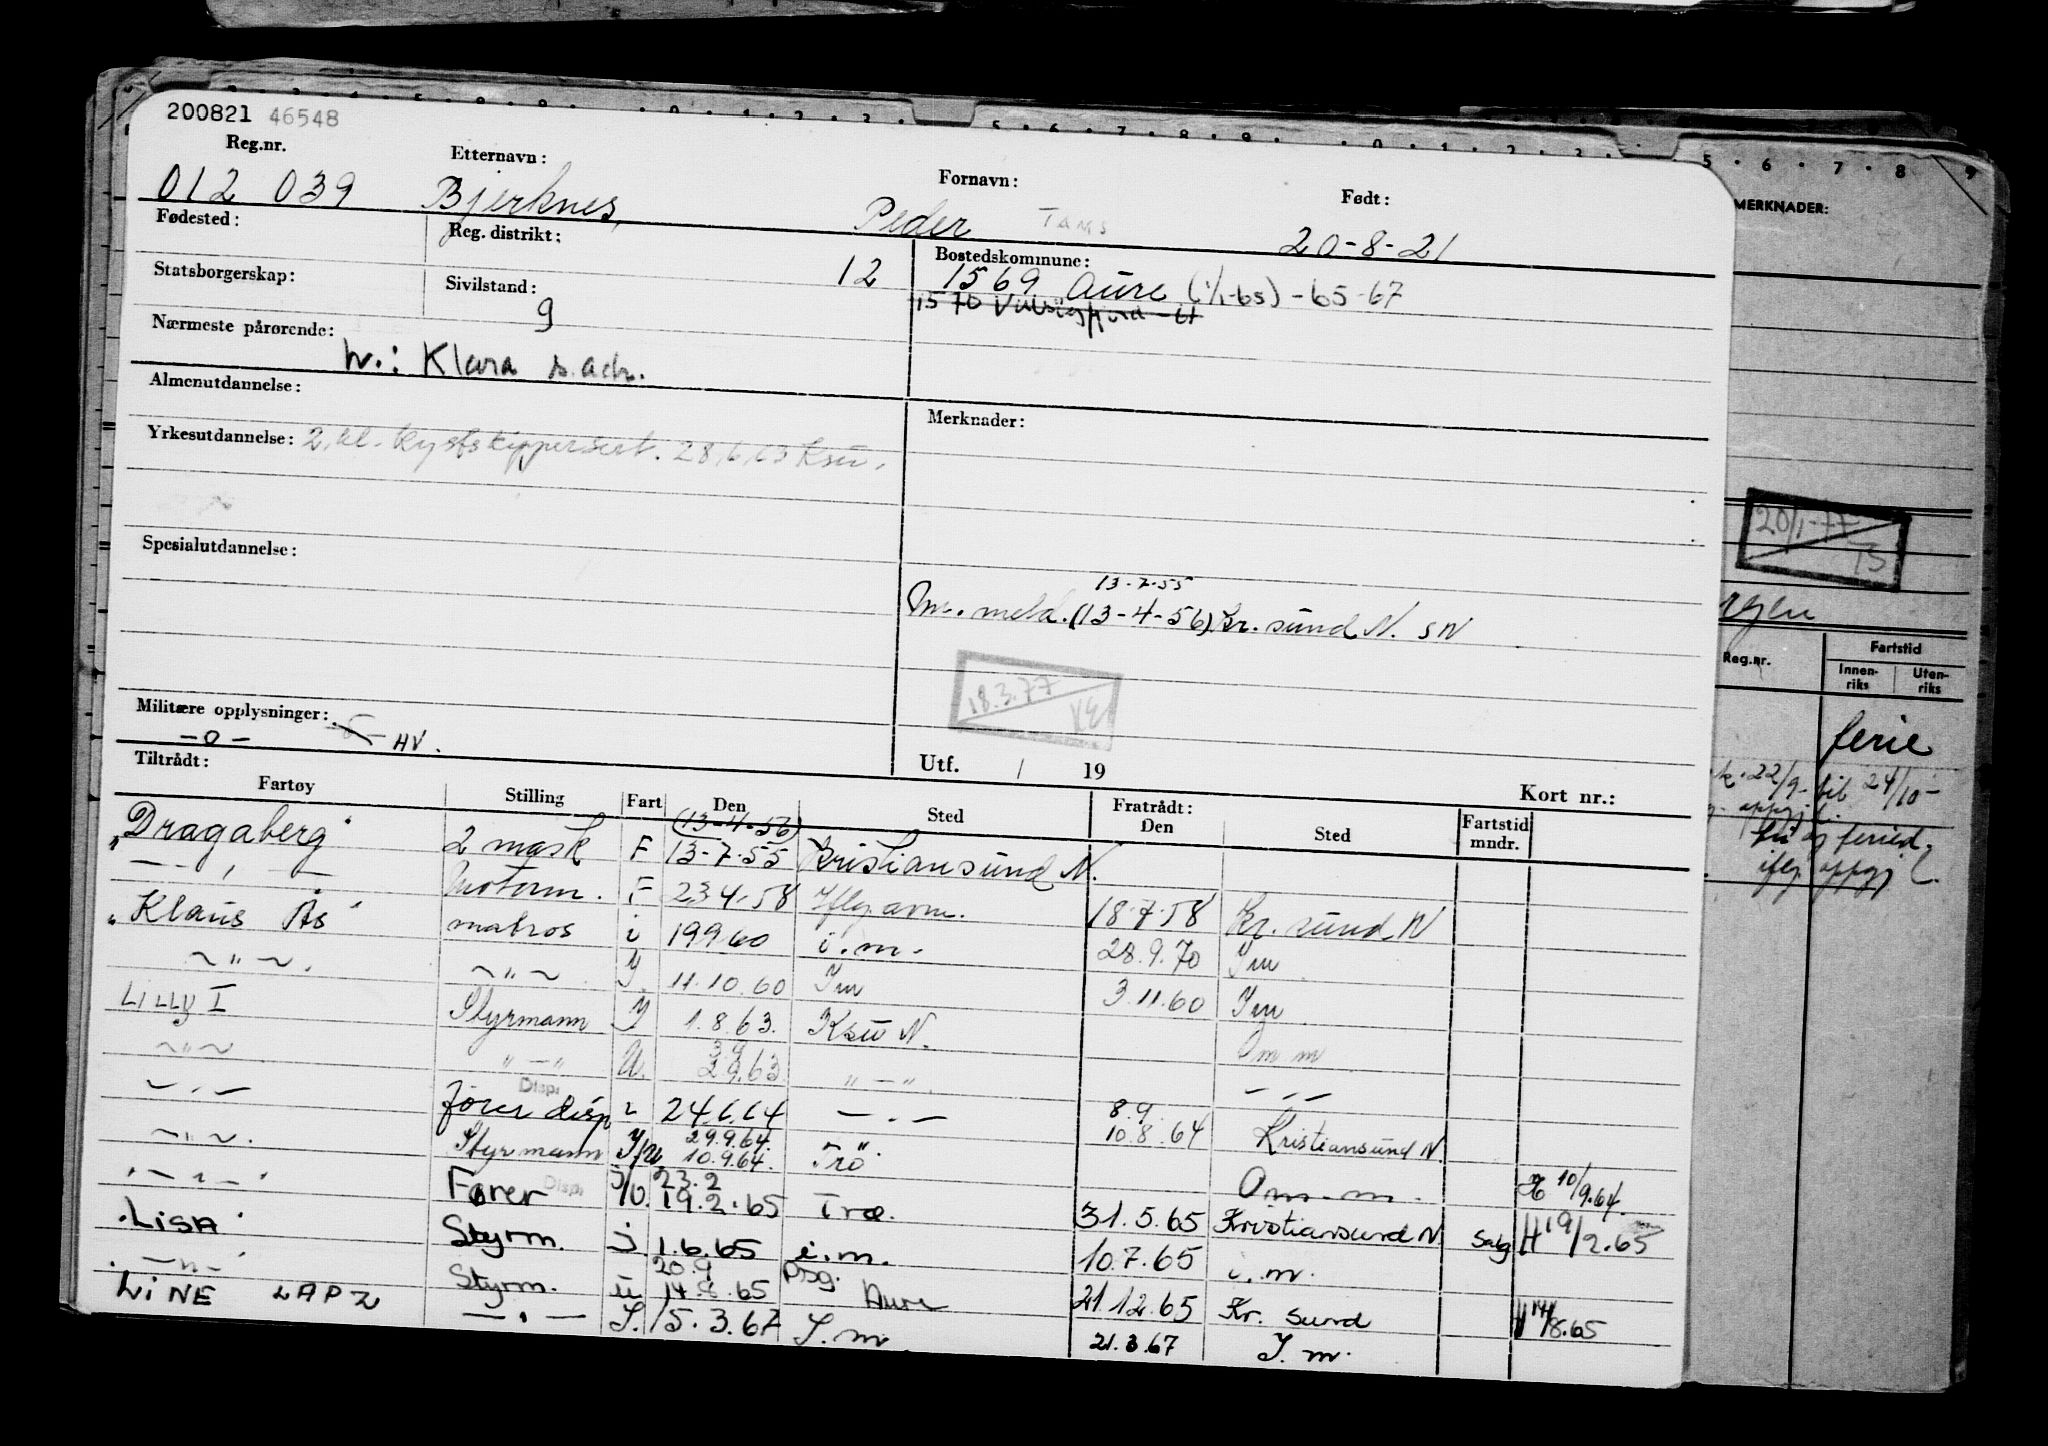 200821 46548
Reg.nr. Etternavn: Fornavn: Født:
012 039 Bjerknes, Peder TAMS 20-8-21
Fødested: Reg. distrikt: 12 Bostedskommune:
1569 Aure (1/1-65) -65-67
1570
Statsborgerskap: Sivilstand: g
Nærmeste pårørende:
h.: Klara s. adr.
Almenutdannelse: Merknader:
Yrkesutdannelse: 2. kl. kystskippersert. 28.6.63 Ksu.
Spesialutdannelse:
13-7-55
m. meld. (13-4-56) Kr. sund N. SN
18.3.77
Militære opplysninger:
-0- HV.
Tiltrådt: Utf. / 19 Kort nr.:
Fartøy Stilling Fart Den Sted Fratrådt: Den Sted Fartstid mndr.
(13-4-56)
"Dragaberg" 2 mask F 13-7-55 Kristiansund N.
— " — Motorm. F 23.4.58 Iflg. avm. 18-7-58 Kr. sund N
"Klaus Ås" matros i 19960 i.m. 28.9.70 Im
~ " ~ ~ " ~ Y. 11.10.60 Im 3.11.60 Im
LILLY I Styrmann Y 1.8.63. Ksu N. Om m
3.9
~ " ~ " — " U. 2.9.63 " — " — " —
Disp.
— " — fører disp u 24.6.64 — " — 8.9. 10.8.64 Kristiansund N.
29.9.64.
~ " ~. Styrmann Y/U 10.9.64. Trö Om m. H 10/9.64.
23.2
— " — Fører Disp. I/U. 19.2.65 Trø. 31.5.65 Kristiansund N. Salg H 19/2.65
"LISA" Styrm. i 1.6.65 i.m. 10.7.65 i.m.
20.9 psg.
— " — Styrm. u 14.8.65 Aure 21.12.65 Kr. sund H 14/8.65
LINE — " — I. 15.3.67 I. m 21.3.67 I. m.
5 6 7 8 9
MERKNADER:
20/1-77
TS
Reg.nr. Fartstid
Innenriks Utenriks
ferie
22/9- til 24/10-
iflg. oppgj.